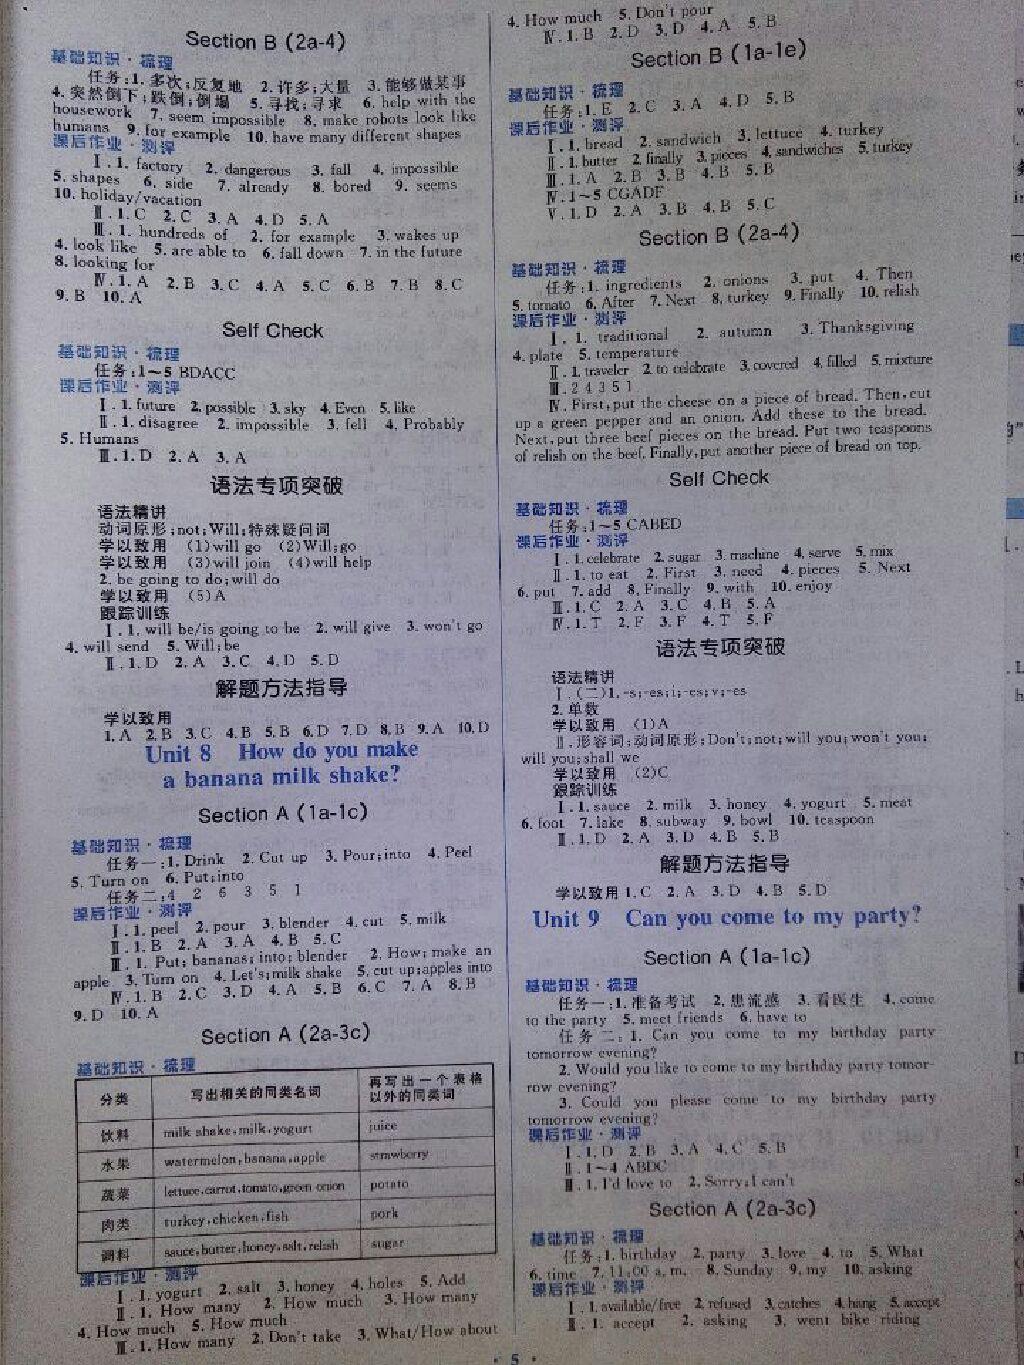 Section B (2a-4)
基础知识·梳理
任务:1. 多次;反复地 2. 许多;大量 3. 能够做某事
4. 突然倒下;跌倒;倒塌 5. 寻找;寻求 6. help with the
housework 7. seem impossible 8. make robots look like
humans 9. for example 10. have many different shapes
课后作业·测评
Ⅰ.1. factory 2. dangerous 3. fall 4. impossible
5. shapes 6. side 7. already 8. bored 9. seems
10. holiday/vacation
Ⅱ.1. C 2. C 3. A 4. D 5. A
Ⅲ.1. hundreds of 2. for example 3. wakes up
4. look like 5. are able to 6. fall down 7. in the future
8. looking for
Ⅳ.1. A 2. B 3. C 4. A 5. C 6. B 7. B 8. C
9. B 10. A
Self Check
基础知识·梳理
任务:1~5 BDACC
课后作业·测评
Ⅰ.1. future 2. possible 3. sky 4. Even 5. like
Ⅱ.1. disagree 2. impossible 3. fell 4. Probably
5. Humans
Ⅲ.1. D 2. A 3. A
语法专项突破
语法精讲
动词原形;not;Will;特殊疑问词
学以致用 (1)will go (2)Will;go
学以致用 (3)will join (4)will help
2. be going to do;will do
学以致用 (5)A
跟踪训练
Ⅰ.1. will be/is going to be 2. will give 3. won't go
4. will send 5. Will;be
Ⅱ.1. D 2. A 3. C 4. D 5. D
解题方法指导
学以致用
1. A 2. B 3. C 4. B 5. B 6. D 7. D 8. B 9. A 10. D
Unit 8 How do you make
a banana milk shake?
Section A (1a-1c)
基础知识·梳理
任务一:1. Drink 2. Cut up 3. Pour;into 4. Peel
5. Turn on 6. Put;into
任务二:4 2 6 3 5 1
课后作业·测评
Ⅰ.1. peel 2. pour 3. blender 4. cut 5. milk
Ⅱ.1. B 2. A 3. A 4. B 5. C
Ⅲ.1. Put; bananas; into; blender 2. How; make an
apple 3. Turn on 4. Let's;milk shake 5. cut up;apples into
Ⅳ.1. B 2. C 3. D 4. A 5. B 6. C 7. A 8. B
9. D 10. A
Section A (2a-3c)
基础知识·梳理
分类 写出相关的同类名词 再写出一个表格以外的同类词
饮料 milk shake,milk,yogurt juice
水果 watermelon,banana,apple strawberry
蔬菜 lettuce,carrot,tomato,green onion potato
肉类 turkey,chicken,fish pork
调料 sauce,butter,honey,salt,relish sugar
课后作业·测评
Ⅰ.1. yogurt 2. salt 3. honey 4. holes 5. Add
Ⅱ.1. How many 2. How much 3. How many
4. How much 5. How much
Ⅲ.1. How many 2. Don't take 3. What/How about
4. How much 5. Don't pour
Ⅳ.1. B 2. D 3. D 4. A 5. B
Section B (1a-1e)
基础知识·梳理
任务:1. E 2. C 3. A 4. D 5. B
课后作业·测评
Ⅰ.1. bread 2. sandwich 3. lettuce 4. turkey
Ⅱ.1. butter 2. finally 3. pieces 4. sandwiches 5. turkey
Ⅲ.1. A 2. B 3. B 4. B 5. B
Ⅳ.1~5 CGADF
Ⅴ.1. D 2. A 3. B 4. B 5. C
Section B (2a-4)
基础知识·梳理
任务:1. ingredients 2. onions 3. put 4. Then
5. tomato 6. After 7. Next 8. turkey 9. Finally 10. relish
课后作业·测评
Ⅰ.1. traditional 2. autumn 3. Thanksgiving
4. plate 5. temperature
Ⅱ.1. traveler 2. to celebrate 3. covered 4. filled 5. mixture
Ⅲ.2 4 3 5 1
Ⅳ. First,put the cheese on a piece of bread. Then,cut
up a green pepper and an onion. Add these to the bread.
Next,put three beef pieces on the bread. Put two teaspoons
of relish on the beef. Finally,put another piece of bread on top.
Self Check
基础知识·梳理
任务:1~5 CABED
课后作业·测评
Ⅰ.1. celebrate 2. sugar 3. machine 4. serve 5. mix
Ⅱ.1. to eat 2. First 3. need 4. pieces 5. Next
6. put 7. add 8. Finally 9. with 10. enjoy
Ⅲ.1. C 2. A 3. C 4. B 5. A
Ⅳ.1. T 2. F 3. F 4. T 5. F
语法专项突破
语法精讲
Ⅰ.(二)1.-s;-es;i;-es;v;-es
2. 单数
学以致用 (1)A
Ⅱ.形容词;动词原形;Don't;not;will you;won't you;
will you;shall we
学以致用 (2)C
跟踪训练
Ⅰ.1. sauce 2. milk 3. honey 4. yogurt 5. meat
6. foot 7. lake 8. subway 9. bowl 10. teaspoon
Ⅱ.1. D 2. A 3. D 4. B 5. B
解题方法指导
学以致用 1. C 2. A 3. D 4. B 5. D
Unit 9 Can you come to my party?
Section A (1a-1c)
基础知识·梳理
任务一:1. 准备考试 2. 患流感 3. 看医生 4. come
to the party 5. meet friends 6. have to
任务二:1. Can you come to my birthday party
tomorrow evening?
2. Would you like to come to my birthday party tomor-
row evening?
3. Could you please come to my birthday party
tomorrow evening?
课后作业·测评
Ⅰ.1. D 2. B 3. A 4. C 5. B
Ⅱ.1~4 ABDC
Ⅲ.1. I'd love to 2. Sorry;I can't
Section A (2a-3c)
基础知识·梳理
任务:1. birthday 2. party 3. love 4. to 5. What
6. time 7. 11:00 a. m. 8. Sunday 9. my 10. asking
课后作业·测评
Ⅰ.1. available/free 2. refused 3. catches 4. hang 5. accept
Ⅱ.1. accept 2. asking 3. went bike riding
· 5 ·